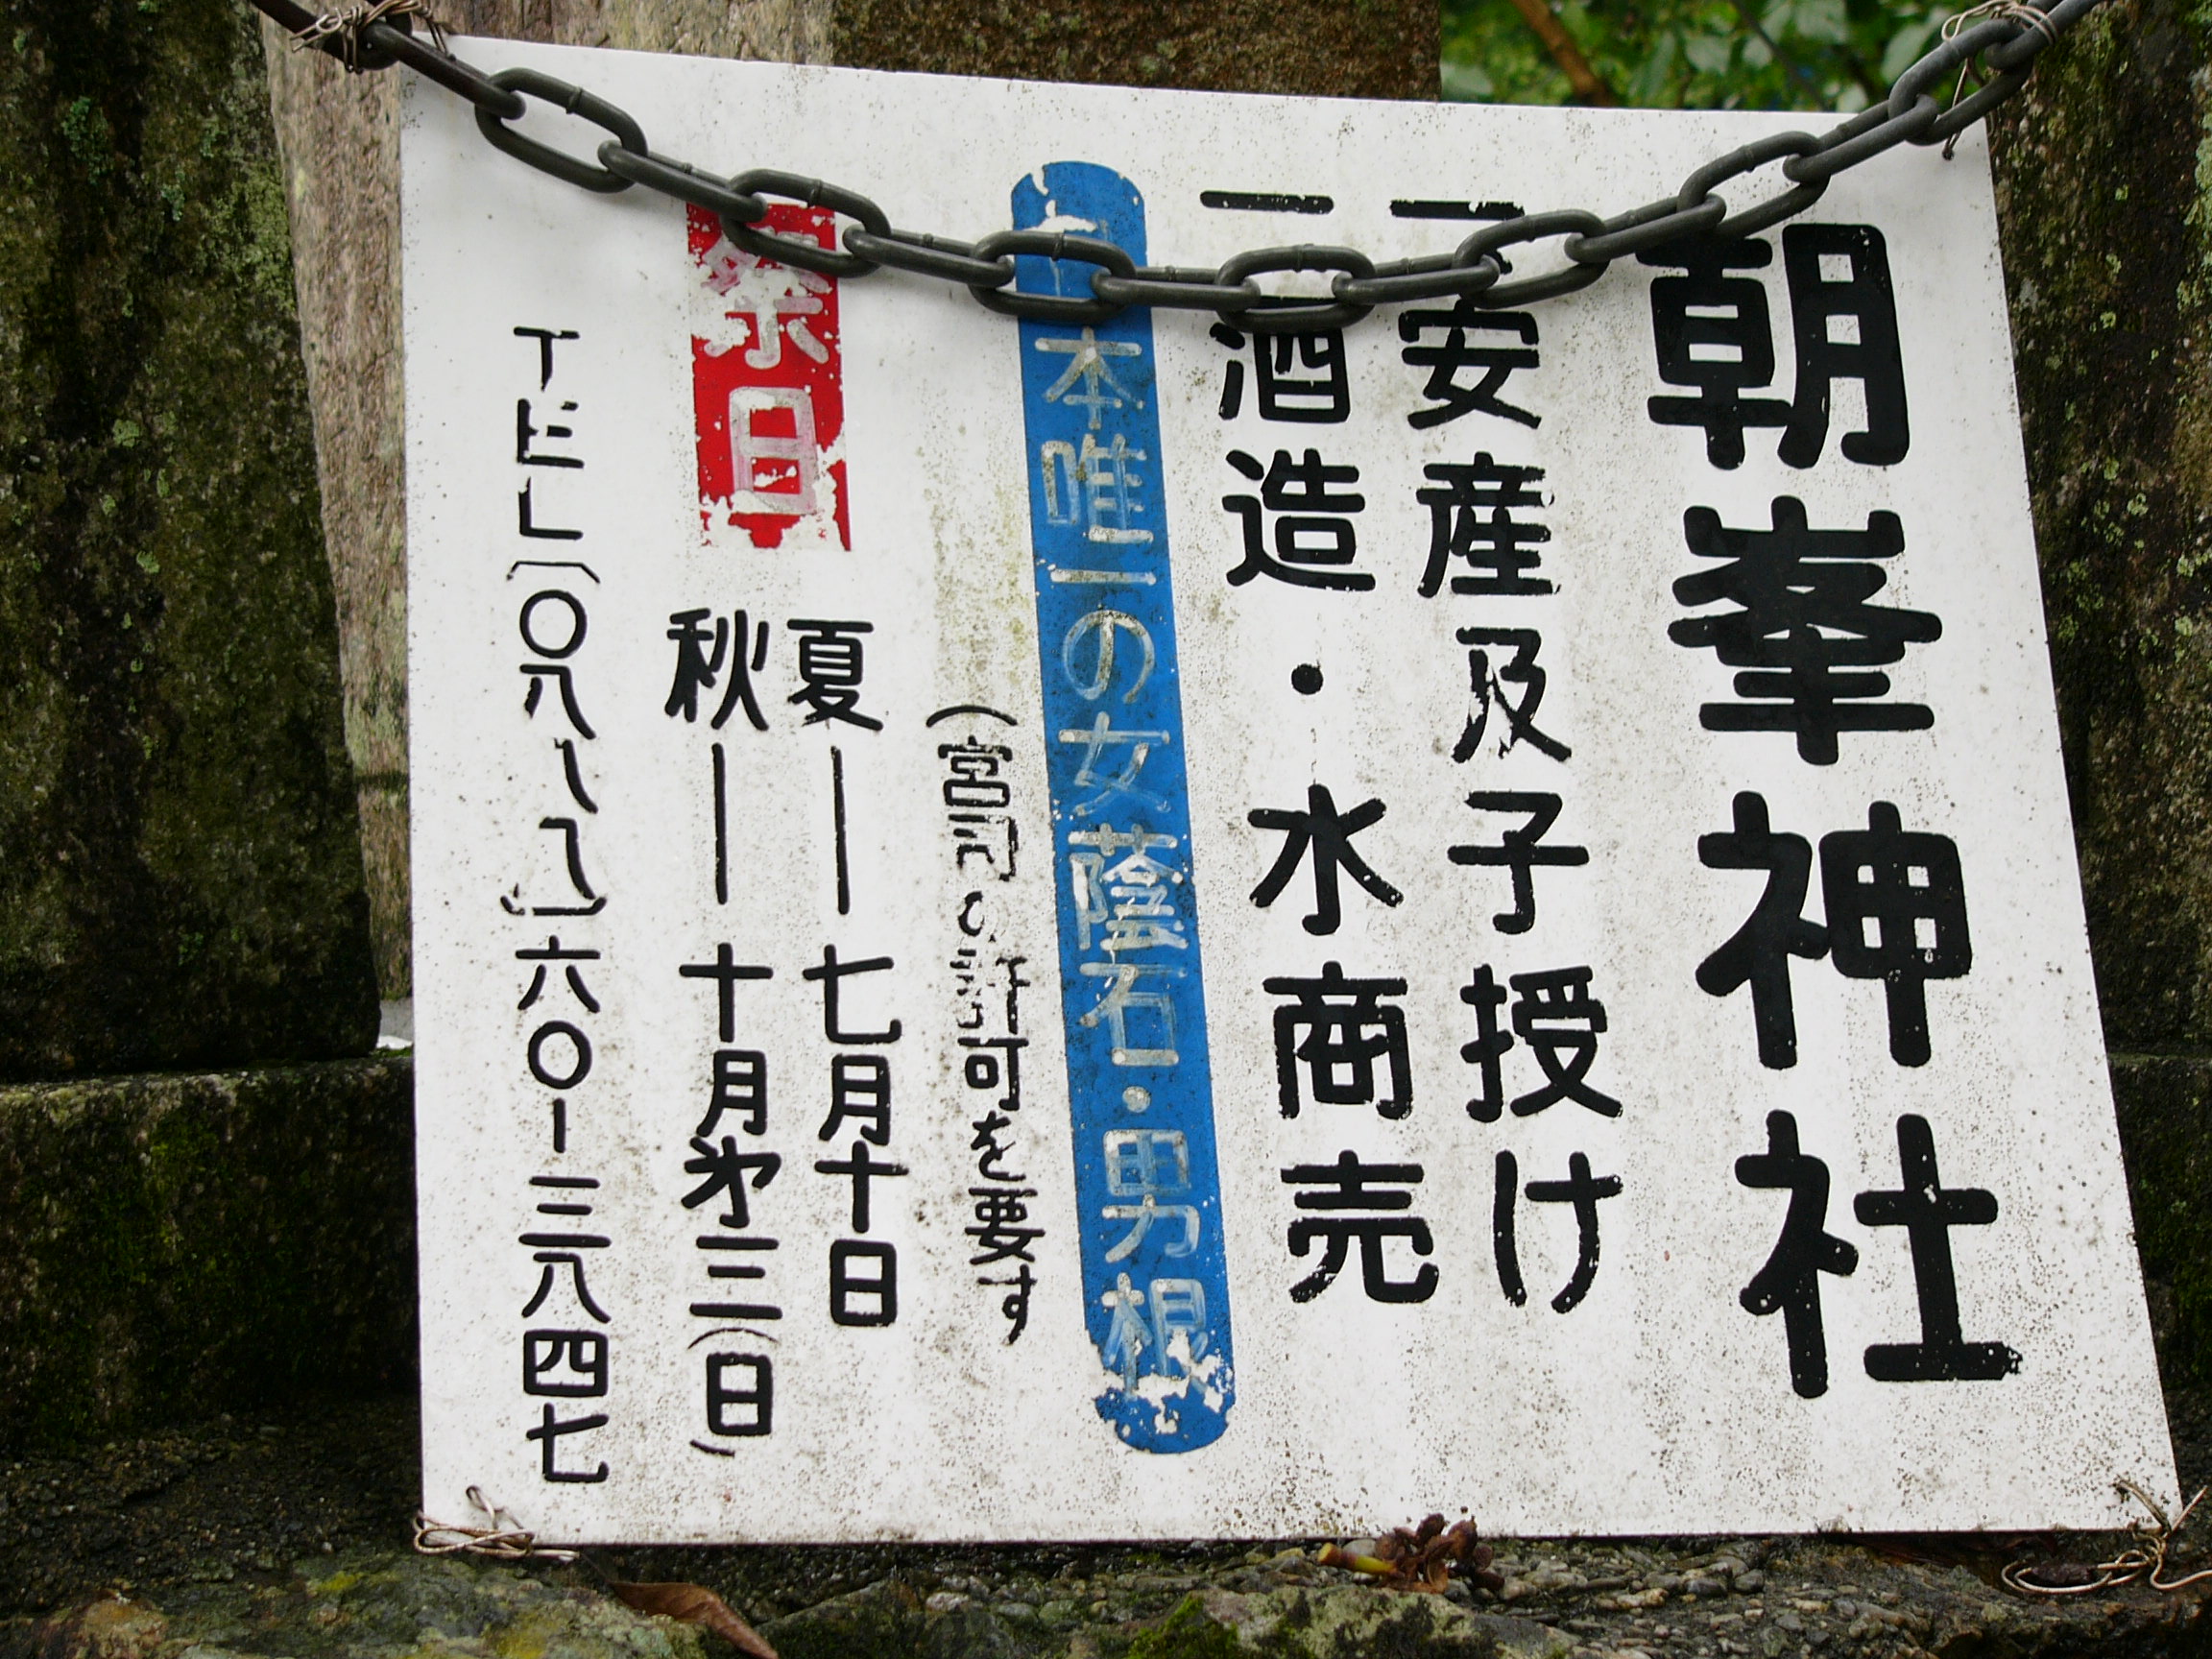 朝峯神社
一 安産及子授け
一 酒造・水商売
日本唯一の女蔭石・男根
(宮司の許可を要す
祭日
夏―七月十日
秋―十月㐧三(日)
TEL(〇八八八)六〇-三八四七